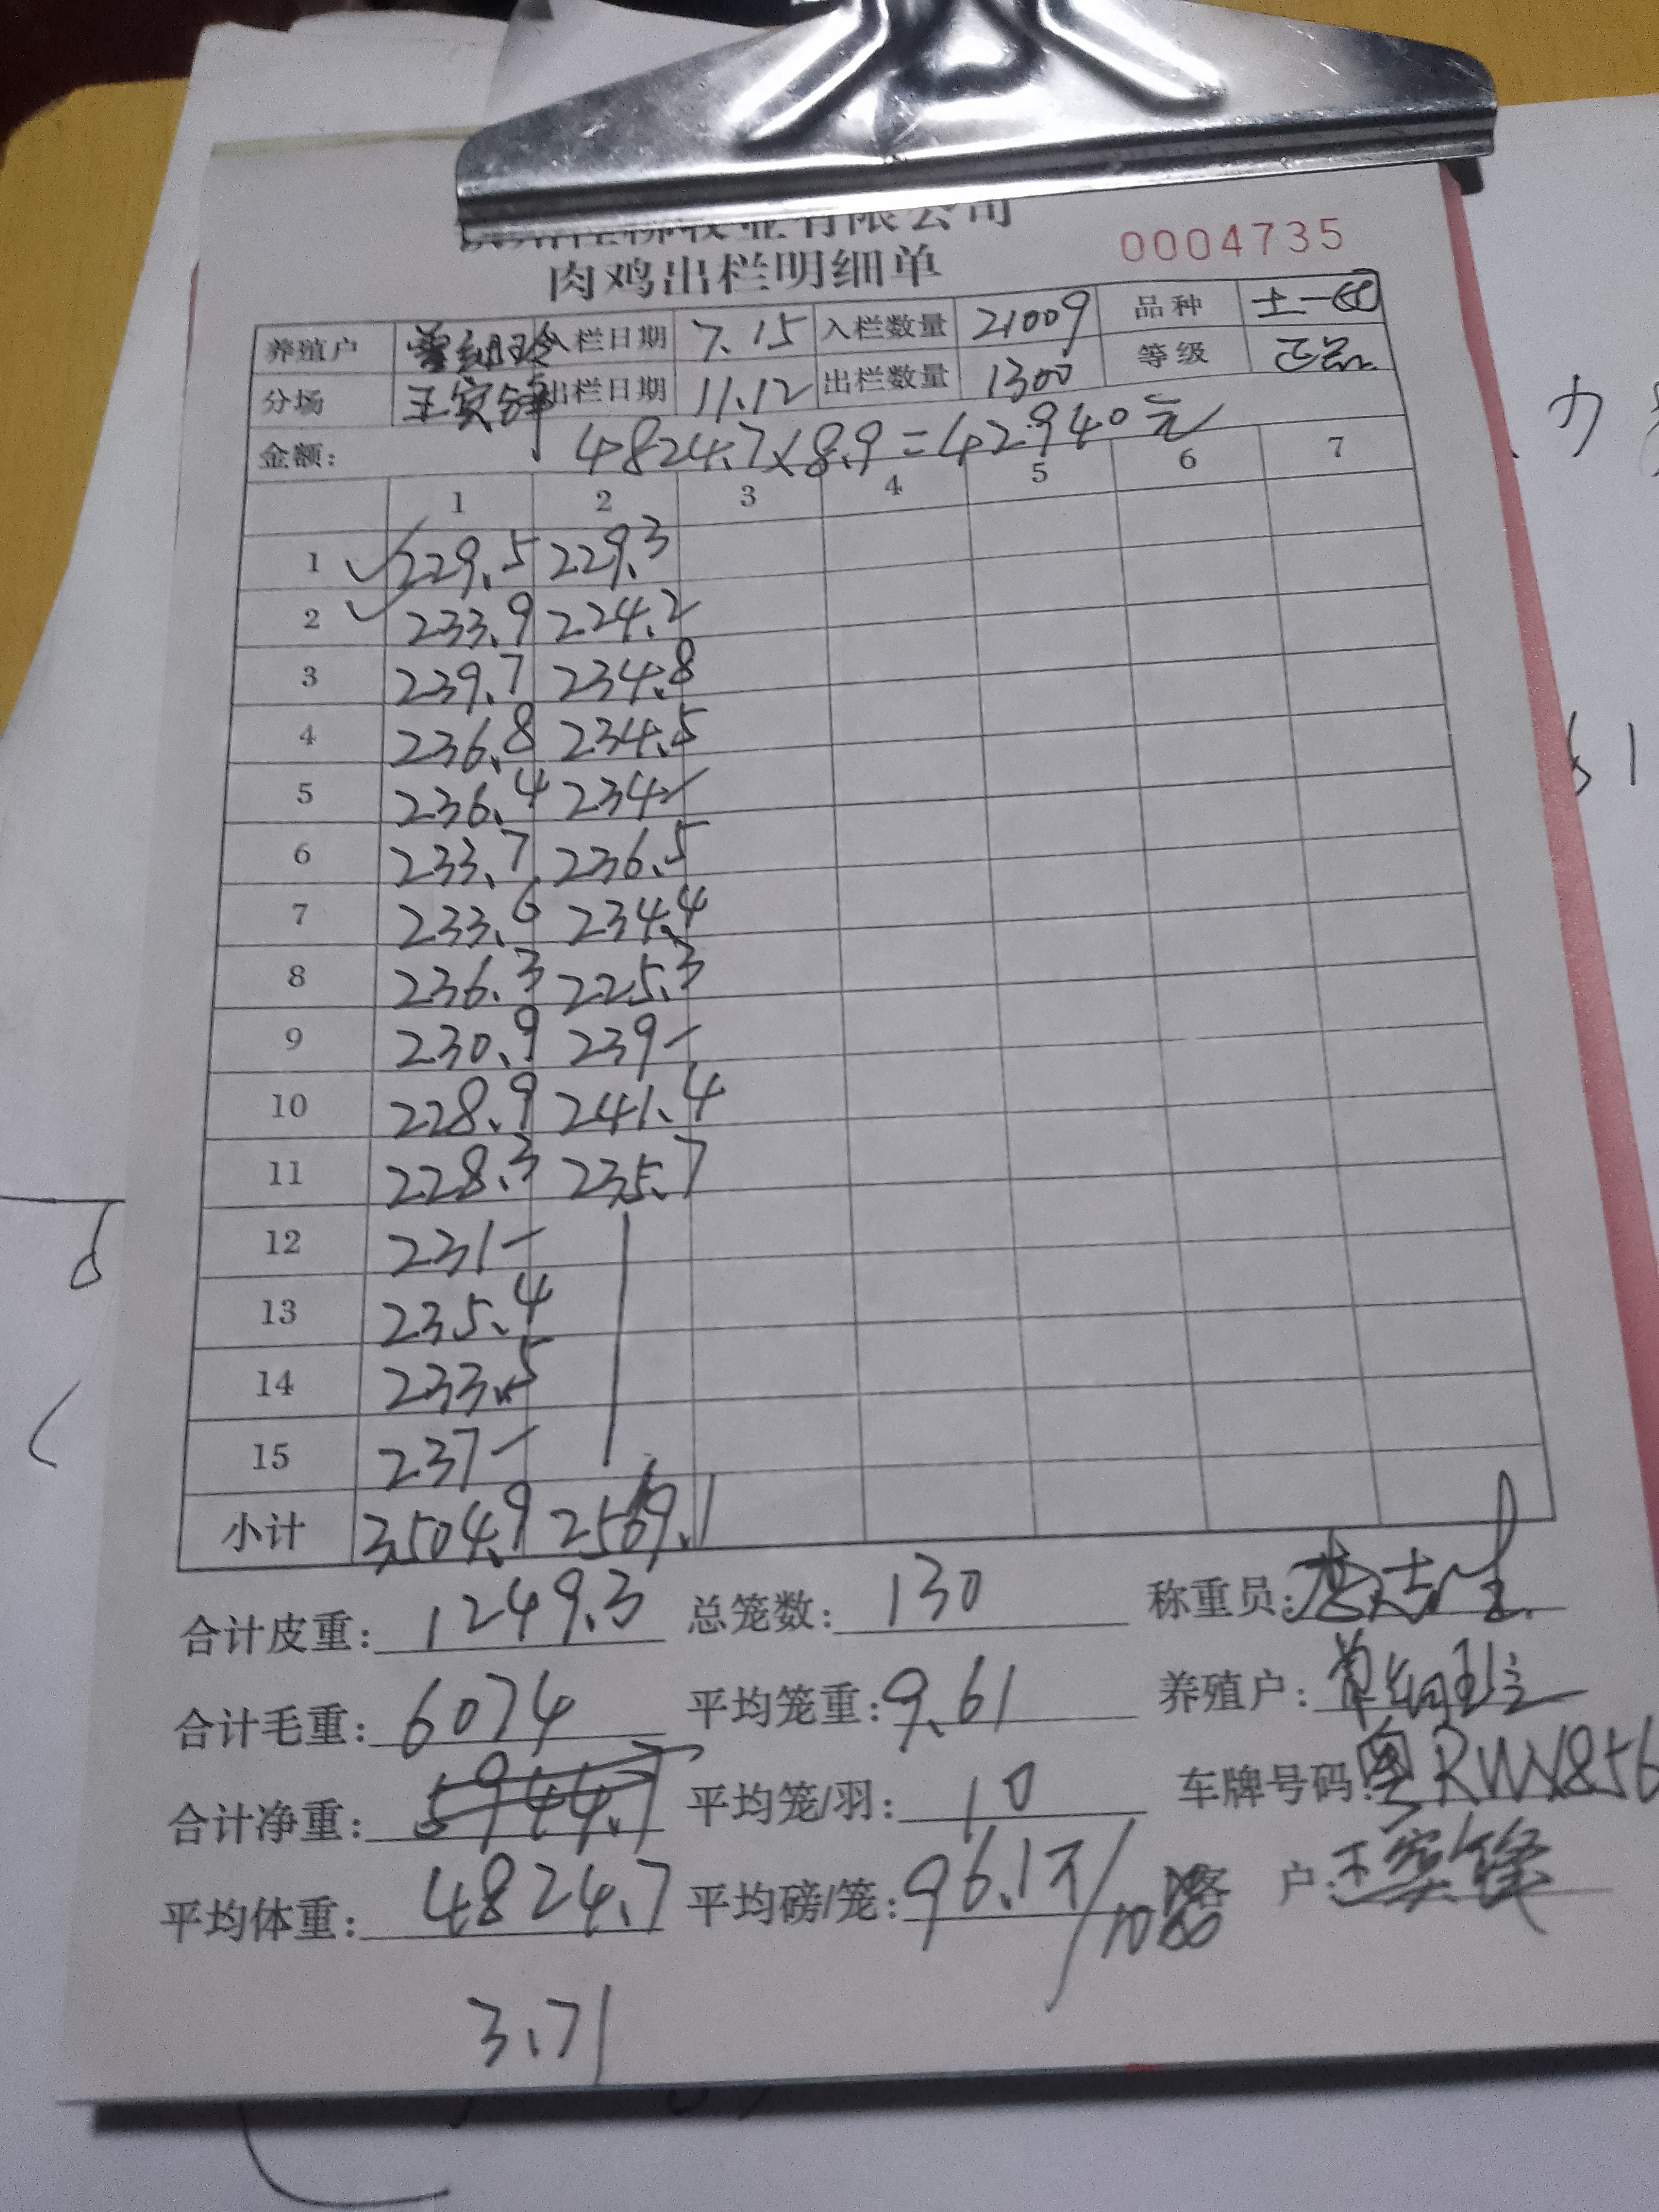 牧业有限公司
肉鸡出栏明细单 0004735
养殖户 曾细玲 入栏日期 7.15 入栏数量 21009 品种 土一
分场 王实锋 出栏日期 11.12 出栏数量 1300 等级 正品
金额: 4824.7×8.9=42940元
1 2 3 4 5 6 7
1 229.5 229.3
2 233.9 224.2
3 239.7 234.8
4 236.8 234.5
5 236.4 234-
6 233.7 236.5
7 233.6 234.4
8 236.3 225.3
9 230.9 239-
10 228.9 241.4
11 228.3 235.7
12 231-
13 235.4
14 233.5
15 237-
小计 3504.9 2569.1
合计皮重: 1249.3 总笼数: 130 称重员:
合计毛重: 6074 平均笼重: 9.61 养殖户: 曾细玲
合计净重: 5944.7 平均笼/羽: 10 车牌号码: 粤RWX856
平均体重: 4824.7 平均磅/笼: 96.1斤/10 客户: 王实锋
3.71